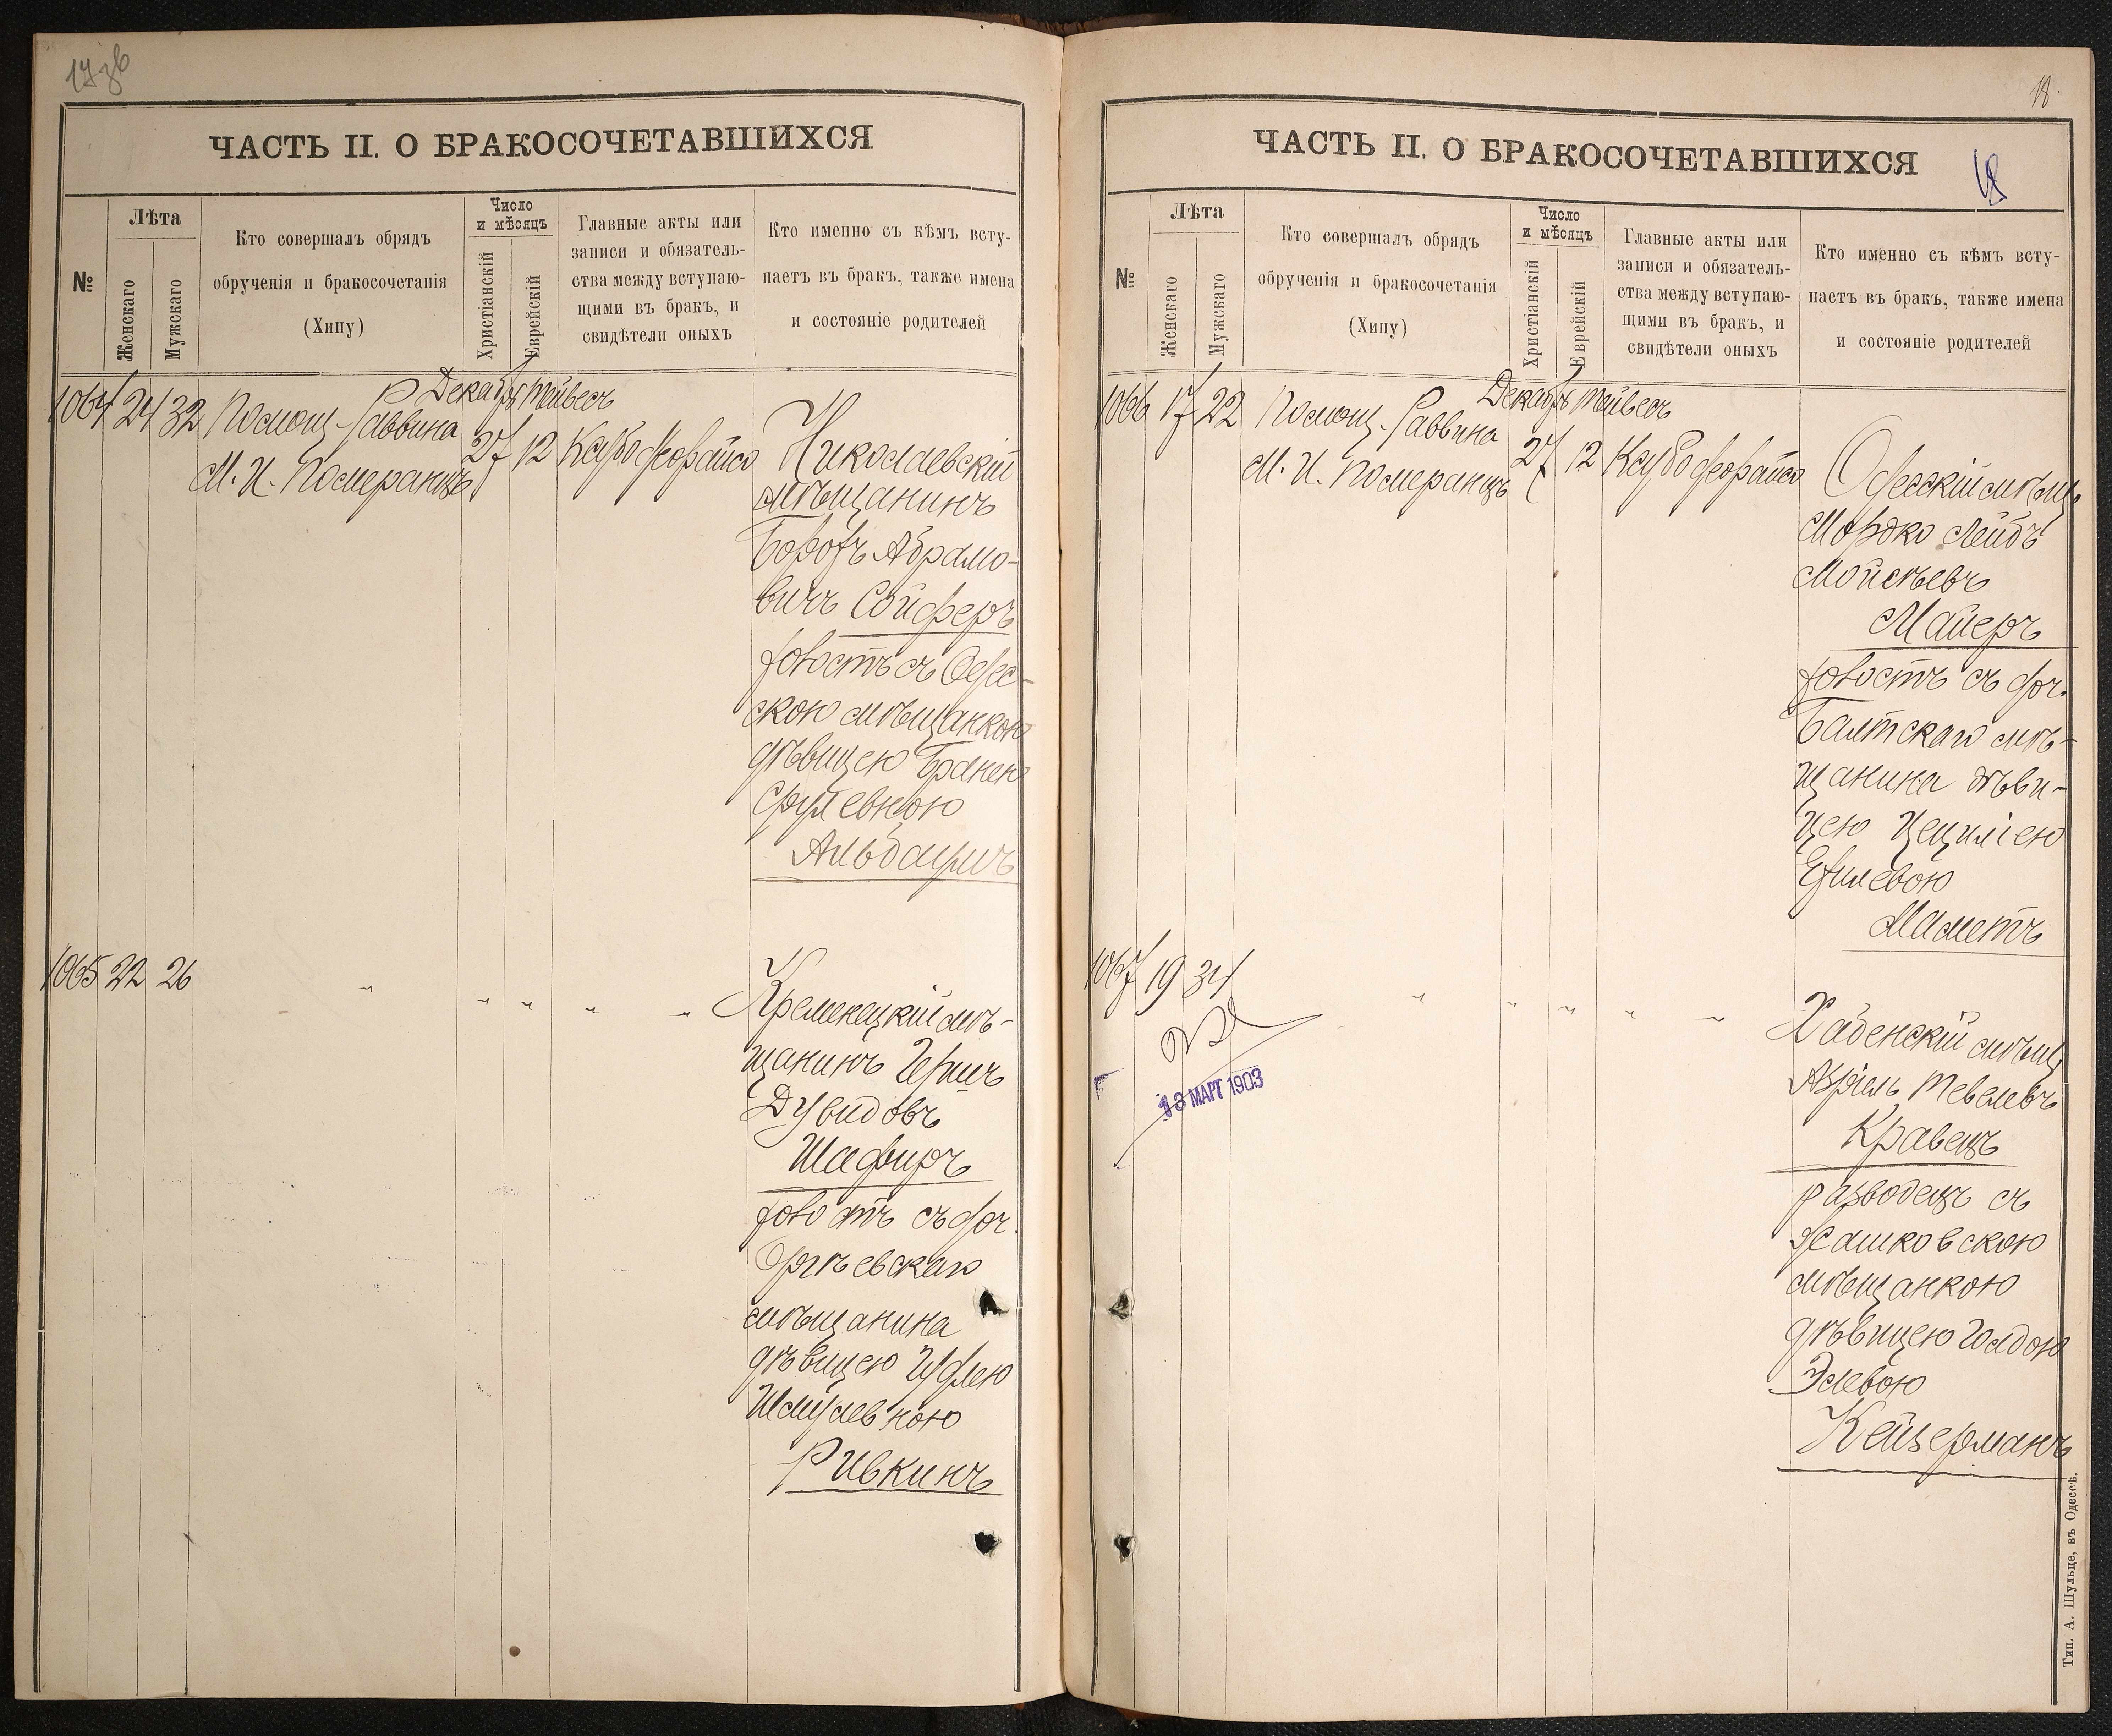 17об
ЧАСТЬ II. О БРАКОСОЧЕТАВШИХСЯ
№
Лѣта
Женскаго
Мужскаго
Кто совершалъ обрядъ
обрученія и бракосочетанія
(Хипу)
Число
и мѣсяцъ
Христіанскій
Еврейскій
Главные акты или
записи и обязатель-
ства между вступаю-
щими въ бракъ, и
свидѣтели оныхъ
Кто именно съ кѣмъ всту-
паетъ въ бракъ, также имена
и состояніе родителей
1064 24 32 Помощ. Раввина
М. И. Померанцъ
Декабрь Тейвесъ
27 12
Николаевскій
мѣщанинъ
Абрамо-
вичъ Сойферъ
холостъ съ Одес-
скою мѣщанкою
дѣвицею Бранею
Срулевною
1065 22 26 " " " " "
Кременецкій мѣ-
щанинъ Гершъ
Дувидовъ
Шафиръ
холостъ съ доч.
Оргѣевскаго
мѣщанина
дѣвицею
Шмулевною
Ривкинъ
18
ЧАСТЬ II. О БРАКОСОЧЕТАВШИХСЯ
18
№
Лѣта
Женскаго
Мужскаго
Кто совершалъ обрядъ
обрученія и бракосочетанія
(Хипу)
Число
и мѣсяцъ
Христіанскій
Еврейскій
Главные акты или
записи и обязатель-
ства между вступаю-
щими въ бракъ, и
свидѣтели оныхъ
Кто именно съ кѣмъ всту-
паетъ въ бракъ, также имена
и состояніе родителей
1066 17 22 Помощ. Раввина
М. И. Померанцъ
Декабрь Тейвесъ
27 12
Одесскій мѣщ.
Мордко Лейбъ
Мойсѣевъ
Маеръ
холостъ съ доч.
Балтскаго мѣ-
щанина дѣви-
цею Цециліею
Маметъ
1067 19 34 " " " " "
13 МАРТ 1903
мѣщ.
Тевелевъ
Кравецъ
разводецъ съ
Жашковскою
мѣщанкою
дѣвицею Голдою
Элевою
Кейзерманъ
Тип. А. Шульце, въ Одессѣ.